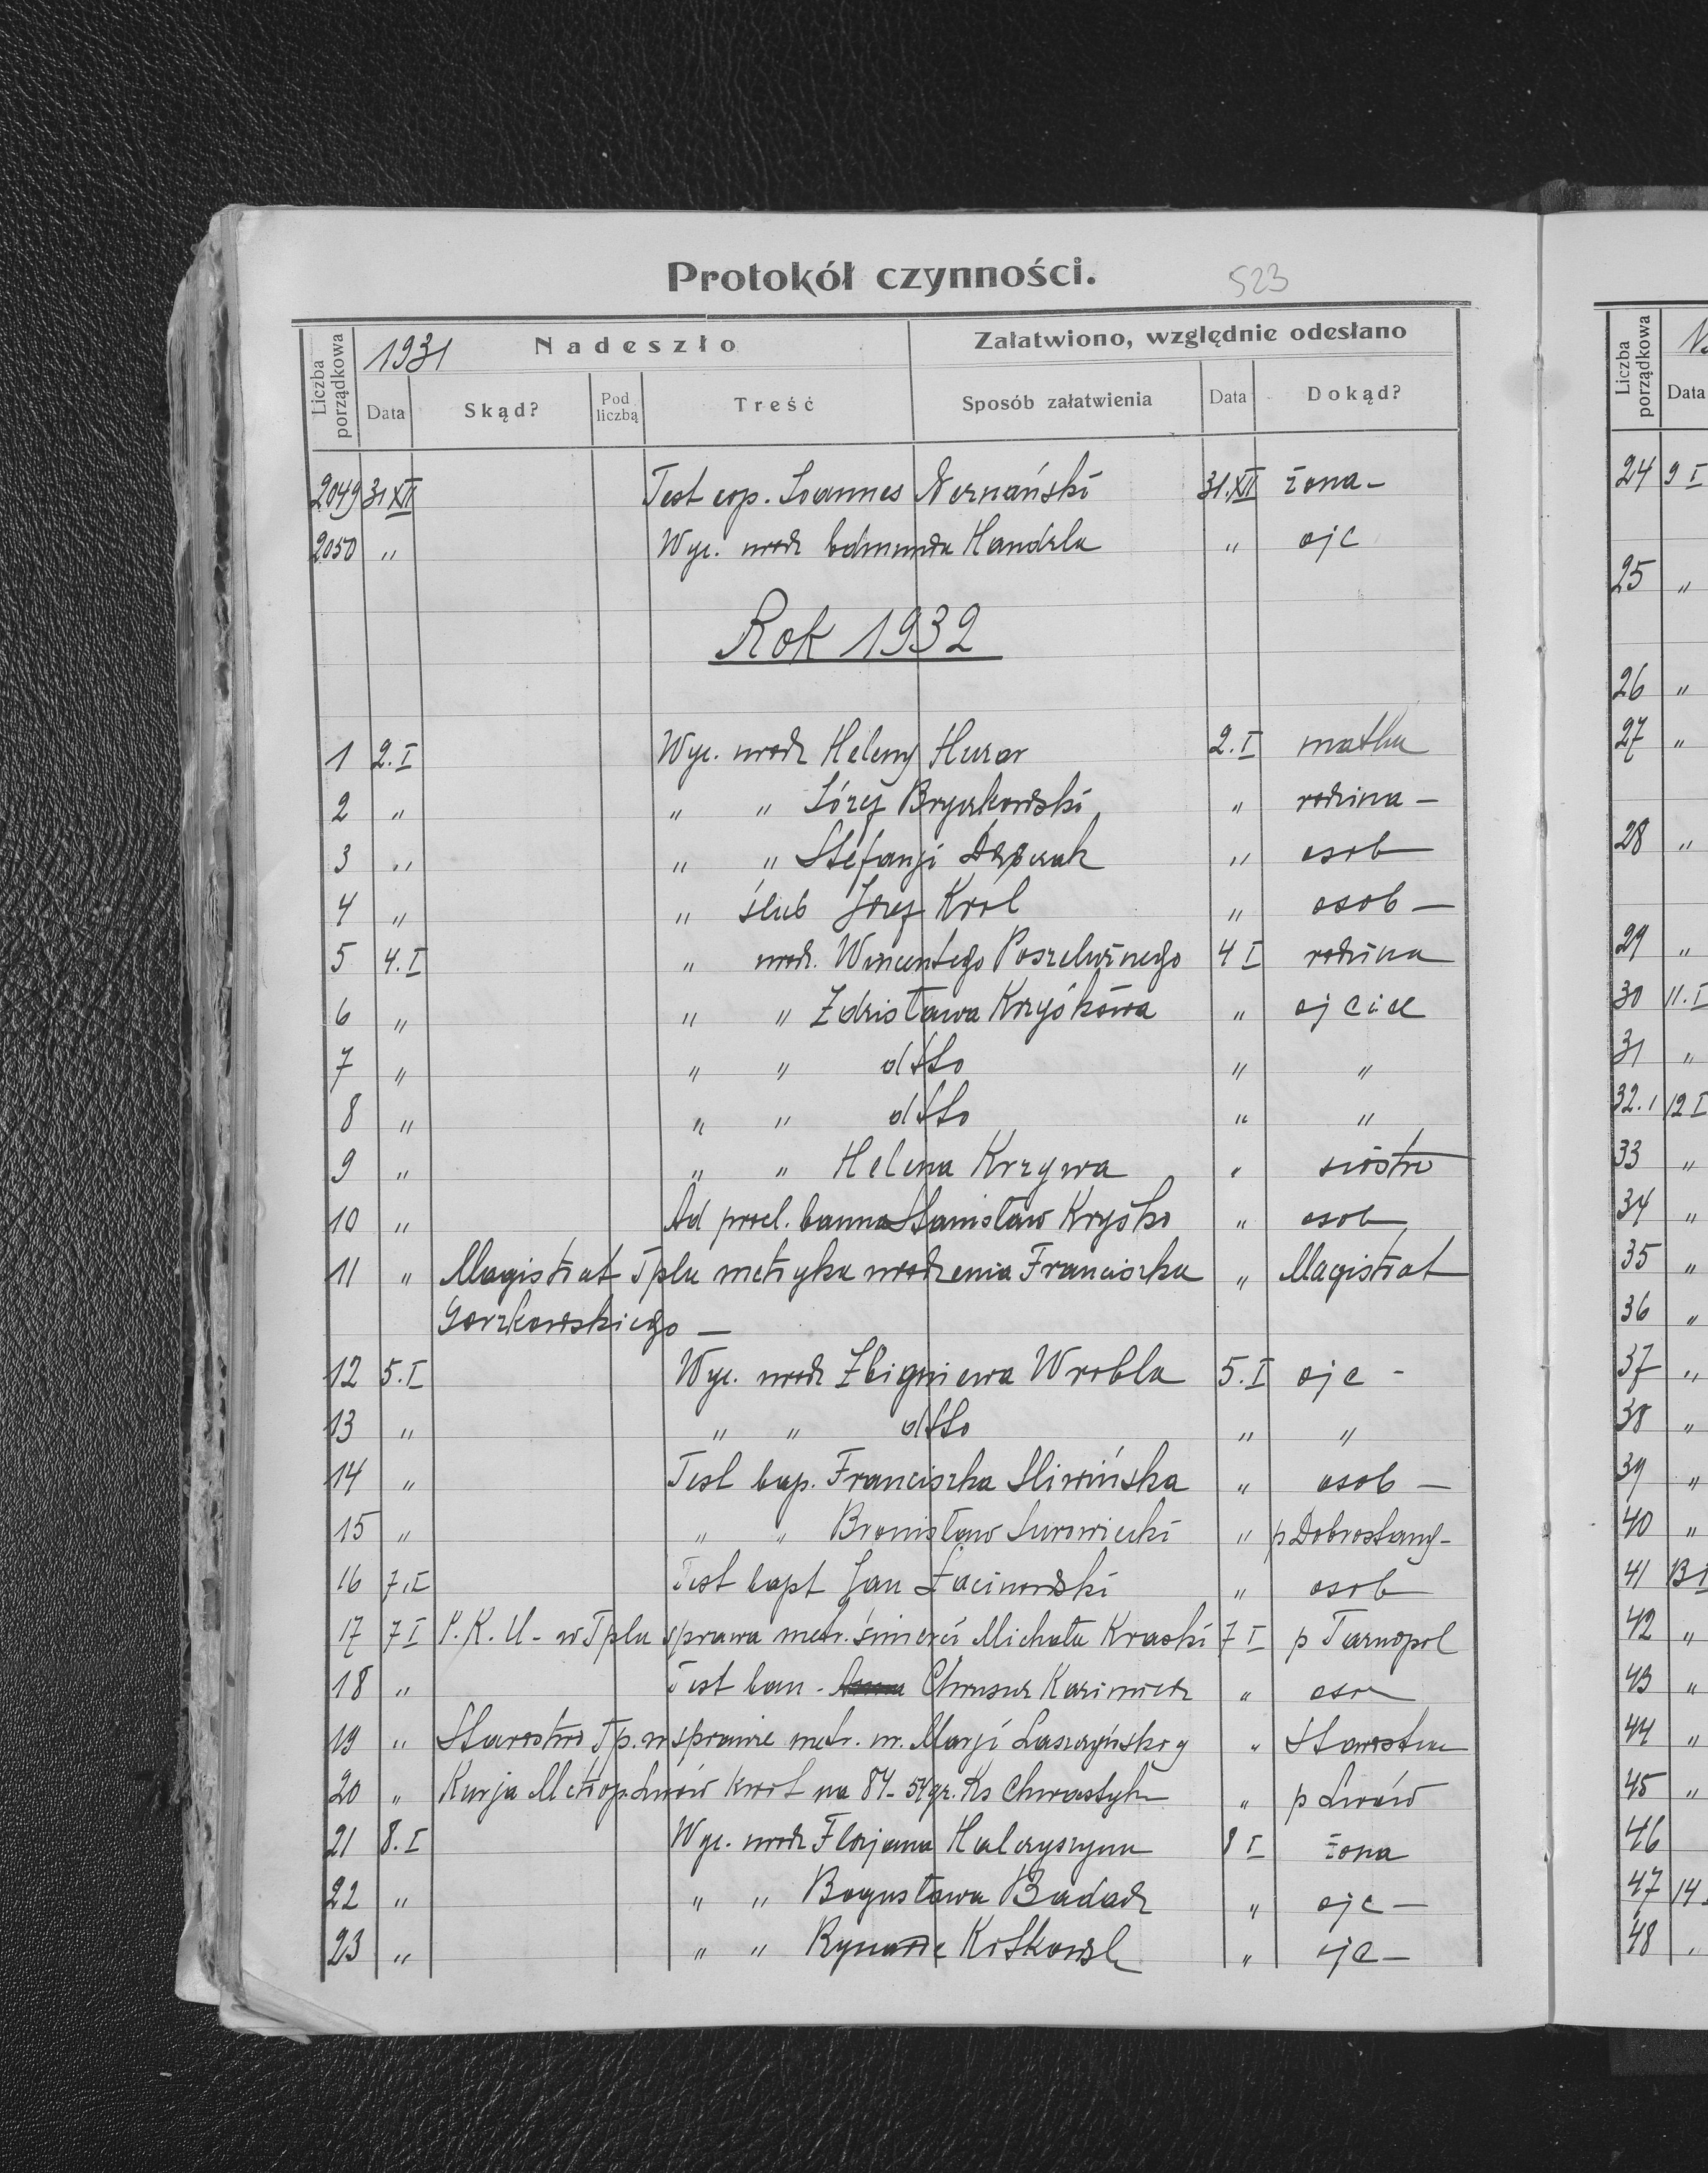 Protokół czynności.
523
Liczba porządkowa
1931
Nadeszło
Załatwiono, względnie odesłano
Data
Skąd?
Pod liczbą
Treść
Sposób załatwienia
Data
Dokąd?
2049 31 XII Test cop. Ioannes Nernański 31.XII żona -
2050 " Wyc. urodz Edmunda Handzla " ojc
Rok 1932
1 2.I Wyc. urodz Heleny Huzar 2.I matka
2 " " " Józef Bryczkowski " rodzina -
3 " " " Stefanji " osob
4 " " ślub Józef Krol " osob -
5 4.I " urodz. Wincentego 4 I rodzina
6 " " " Zdzisława Kryśkowa " ojciec
7 " " " dtto " "
8 " " " dtto " "
9 " " " Helena Krzywa " siostra
10 " Ad procl. banna Stanisław Kryśko " osob
11 " Magistrat Tplu metryka urodzenia Franciszka " Magistrat
Gorzkowskiego -
12 5.I Wyc. urodz Zbigniewa Wrobla 5.I ojc -
13 " " " dtto " "
14 " Test bap. Franciszka Sliwińska " osob -
15 " " " Bronisław Surowiecki " p Dobrostany -
16 7.I Test bapt Jan Łacinowski " osob
17 7 I P.K.U - w Tplu sprawa metr. śmierci Michała Kraski 7 I p Tarnopol
18 " Test ban. Kazimierz "
19 " Starostwo Tp. w sprawie metr. ur. Marji " Starostwo
20 " Kurja Metrop. Lwów kwit na 84 - 54 gr. Ks Chwastyk " p Lwów
21 8.I Wyc. urodz Florjana Halczyszyna 8 I żona
22 " " " Bogusława Badacz " ojc -
23 " " " " ojc -
Liczba porządkowa
Data
24 9 I
25 "
26 "
27 "
28 "
29 "
30 11.I
31 "
32. 12 I
33 "
34 "
35 "
36 "
37 "
38 "
39 "
40 "
41 13 I
42 "
43 "
44 "
45 "
46
47 14
48 "